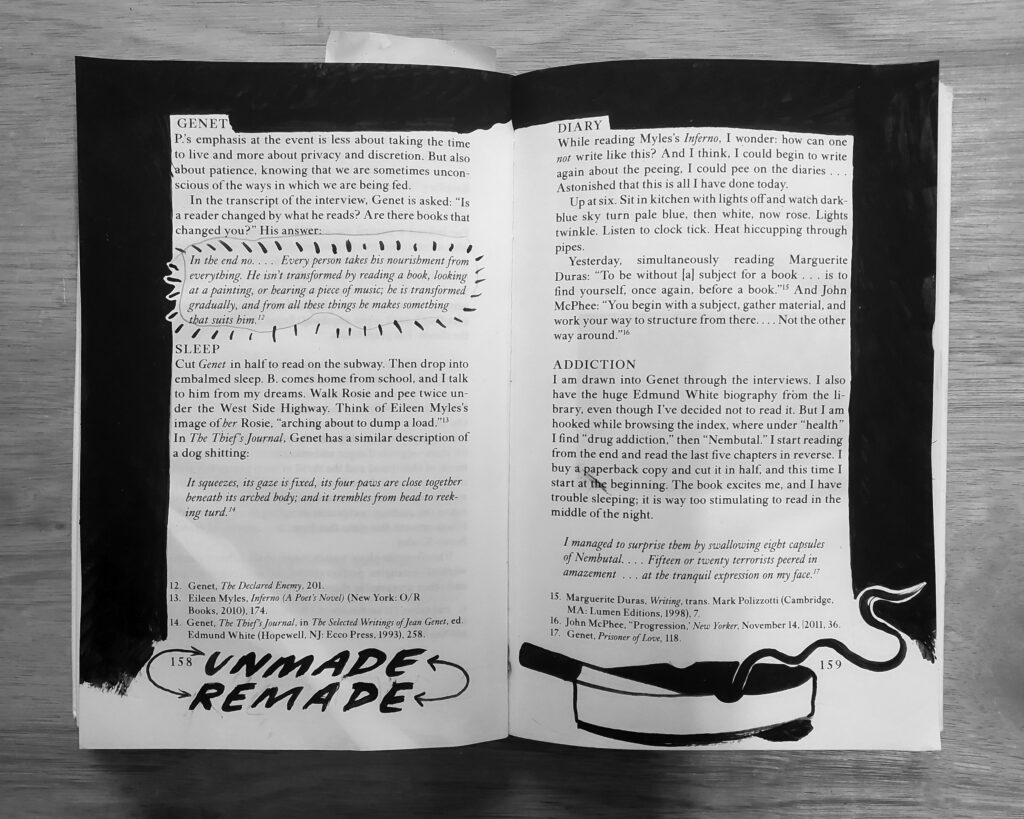 GENET
P.'s emphasis at the event is less about taking the time
to live and more about privacy and discretion. But also
about patience, knowing that we are sometimes uncon-
scious of the ways in which we are being fed.
In the transcript of the interview, Genet is asked: “Is
a reader changed by what he reads? Are there books that
changed you?” His answer:
In the end no. . . . Every person takes his nourishment from
everything. He isn't transformed by reading a book, looking
at a painting, or hearing a piece of music; he is transformed
gradually, and from all these things he makes something
that suits him.12
SLEEP
Cut Genet in half to read on the subway. Then drop into
embalmed sleep. B. comes home from school, and I talk
to him from my dreams. Walk Rosie and pee twice un-
der the West Side Highway. Think of Eileen Myles's
image of her Rosie, “arching about to dump a load.”13
In The Thief's Journal, Genet has a similar description of
a dog shitting:
It squeezes, its gaze is fixed, its four paws are close together
beneath its arched body; and it trembles from head to reek-
ing turd.14
12. Genet, The Declared Enemy, 201.
13. Eileen Myles, Inferno (A Poet's Novel) (New York: O/R
Books, 2010), 174.
14. Genet, The Thief's Journal, in The Selected Writings of Jean Genet, ed.
Edmund White (Hopewell, NJ: Ecco Press, 1993), 258.
158 UNMADE
REMADE
DIARY
While reading Myles's Inferno, I wonder: how can one
not write like this? And I think, I could begin to write
again about the peeing, I could pee on the diaries . . .
Astonished that this is all I have done today.
Up at six. Sit in kitchen with lights off and watch dark-
blue sky turn pale blue, then white, now rose. Lights
twinkle. Listen to clock tick. Heat hiccupping through
pipes.
Yesterday, simultaneously reading Marguerite
Duras: “To be without [a] subject for a book . . . is to
find yourself, once again, before a book.”15 And John
McPhee: “You begin with a subject, gather material, and
work your way to structure from there. . . . Not the other
way around.”16
ADDICTION
I am drawn into Genet through the interviews. I also
have the huge Edmund White biography from the li-
brary, even though I've decided not to read it. But I am
hooked while browsing the index, where under “health”
I find “drug addiction,” then “Nembutal.” I start reading
from the end and read the last five chapters in reverse. I
buy a paperback copy and cut it in half, and this time I
start at the beginning. The book excites me, and I have
trouble sleeping; it is way too stimulating to read in the
middle of the night.
I managed to surprise them by swallowing eight capsules
of Nembutal. . . . Fifteen or twenty terrorists peered in
amazement . . . at the tranquil expression on my face.17
15. Marguerite Duras, Writing, trans. Mark Polizzotti (Cambridge,
MA: Lumen Editions, 1998), 7.
16. John McPhee, “Progression,” New Yorker, November 14, 2011, 36.
17. Genet, Prisoner of Love, 118.
159